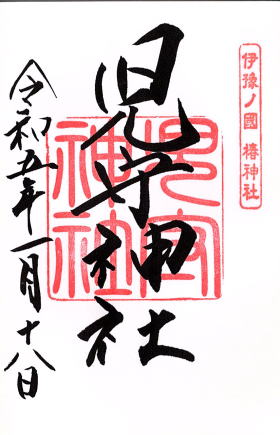 伊豫ノ國 椿神社
児守神社
令和五年一月十八日
児守神社